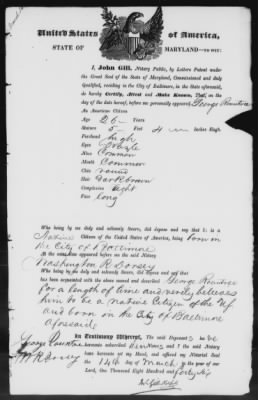 United States of America,
STATE OF MARYLAND—TO WIT:
I, John Gill, Notary Public, by Letters Patent under
the Great Seal of the State of Maryland, Commissioned and duly
Qualified, residing in the City of Baltimore, in the State aforesaid,
do hereby Certify, Attest and Make Known, That, on
the day of the date hereof, before me personally appeared George Rountree
An American Citizen
Age 26 Years
Stature 5 Feet 4 Inches High.
Forehead high
Eyes
Nose Common
Mouth Common
Chin round
Hair Dark brown
Complexion light
Face long
Who being by me duly and solemnly sworn, did depose and say that he is a
Native Citizen of the United States of America, being born in
the City of Baltimore
At the same time appeared before me the said Notary
Washington R Dorsey
Who being by me duly and solemnly sworn, did depose and say that he
has been acquainted with the above named and described George Rountree
for a length of time and verily believes
him to be a native Citizen of the US
and born in the City of Baltimore
aforesaid
In Testimony Whereof, The said Deponents
George Rountree hereunto subscribed their Names, and I the said Notary
W R Dorsey have hereunto set my Hand, and affixed my Notarial Seal
the 14th day of March in the year of our
Lord, One Thousand Eight Hundred and forty